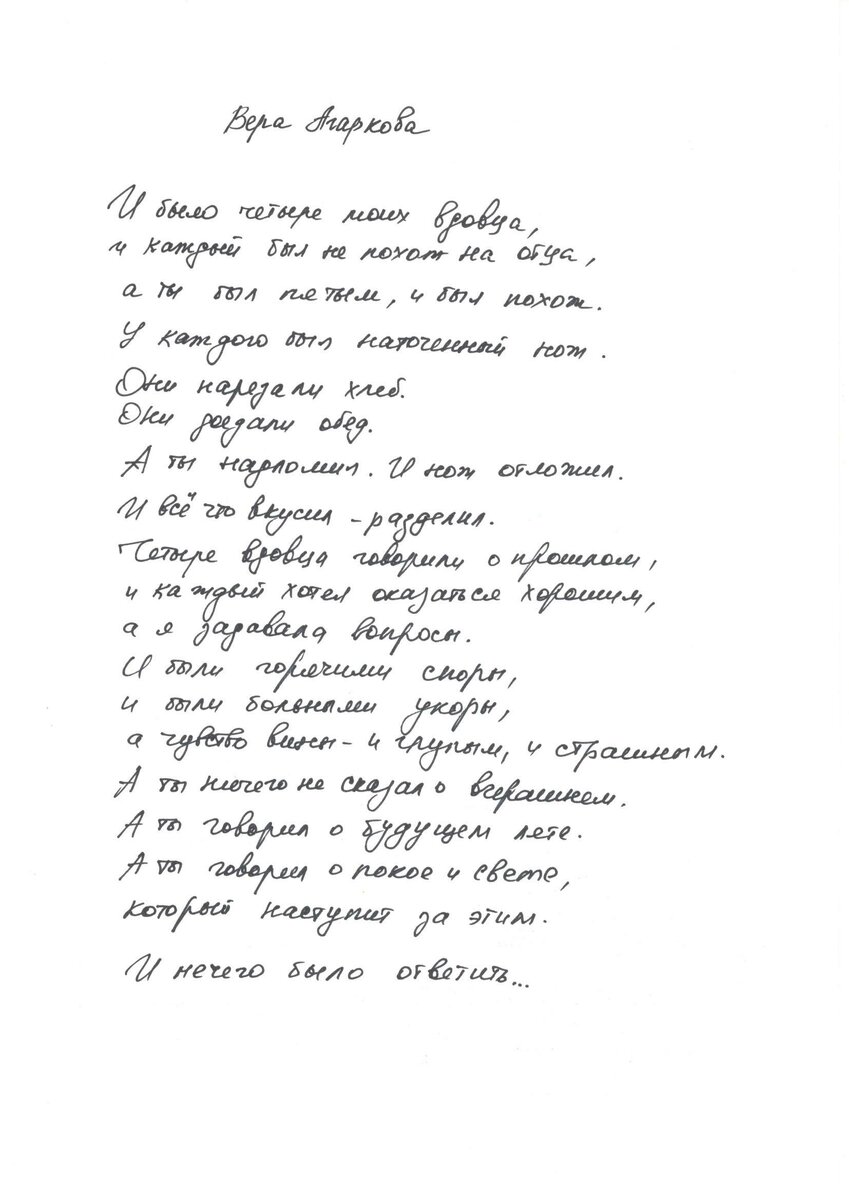 Вера Агаркова
И было четыре моих вдовца,
и каждый был не похож на отца,
а ты был пятым, и был похож.
У каждого был наточенный нож.
Они нарезали хлеб.
Они доедали обед.
А ты надломил. И нож отложил.
И всё что вкусил – разделил.
Четыре вдовца говорили о прошлом,
и каждый хотел оказаться хорошим,
а я задавала вопросы.
И были горячими споры,
и были больными укоры,
а чувство вины – и глупым, и страшным.
А ты ничего не сказал о вчерашнем.
А ты говорил о будущем лете.
А ты говорил о покое и свете,
который наступит за этим.
И нечего было ответить...